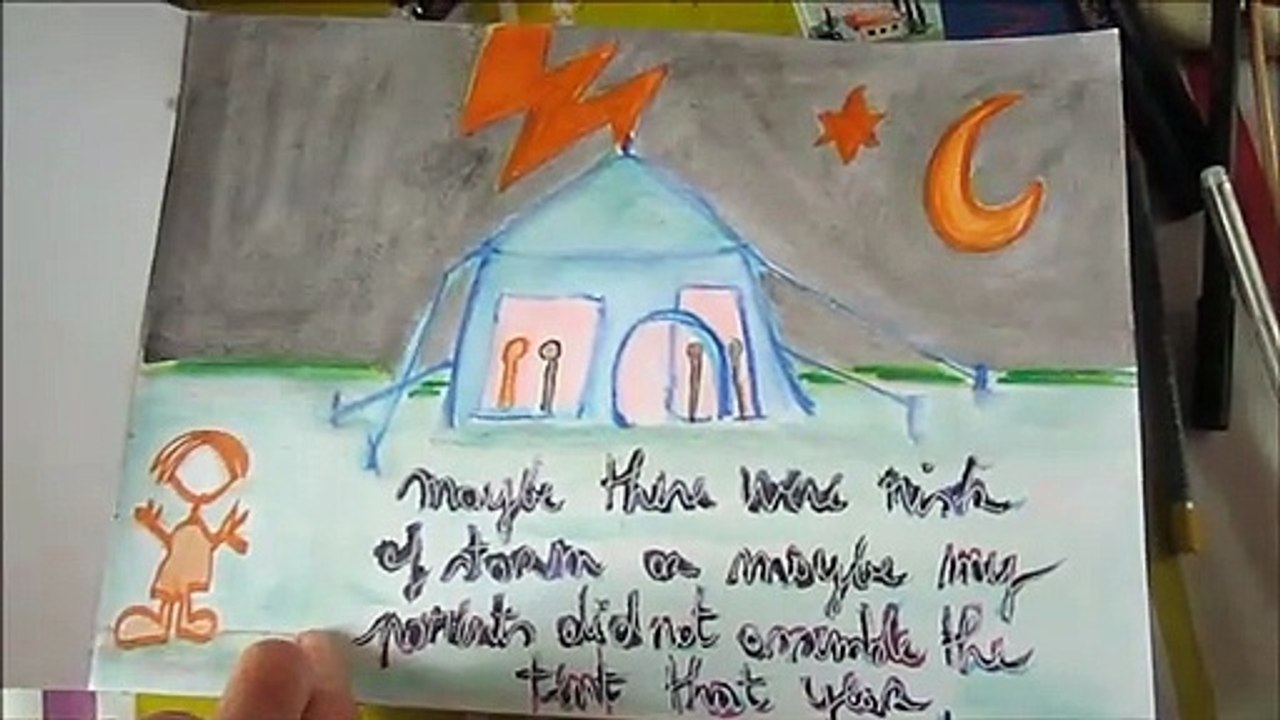 maybe there were risk
of storm or maybe my
parents did not assemble the
tent that year